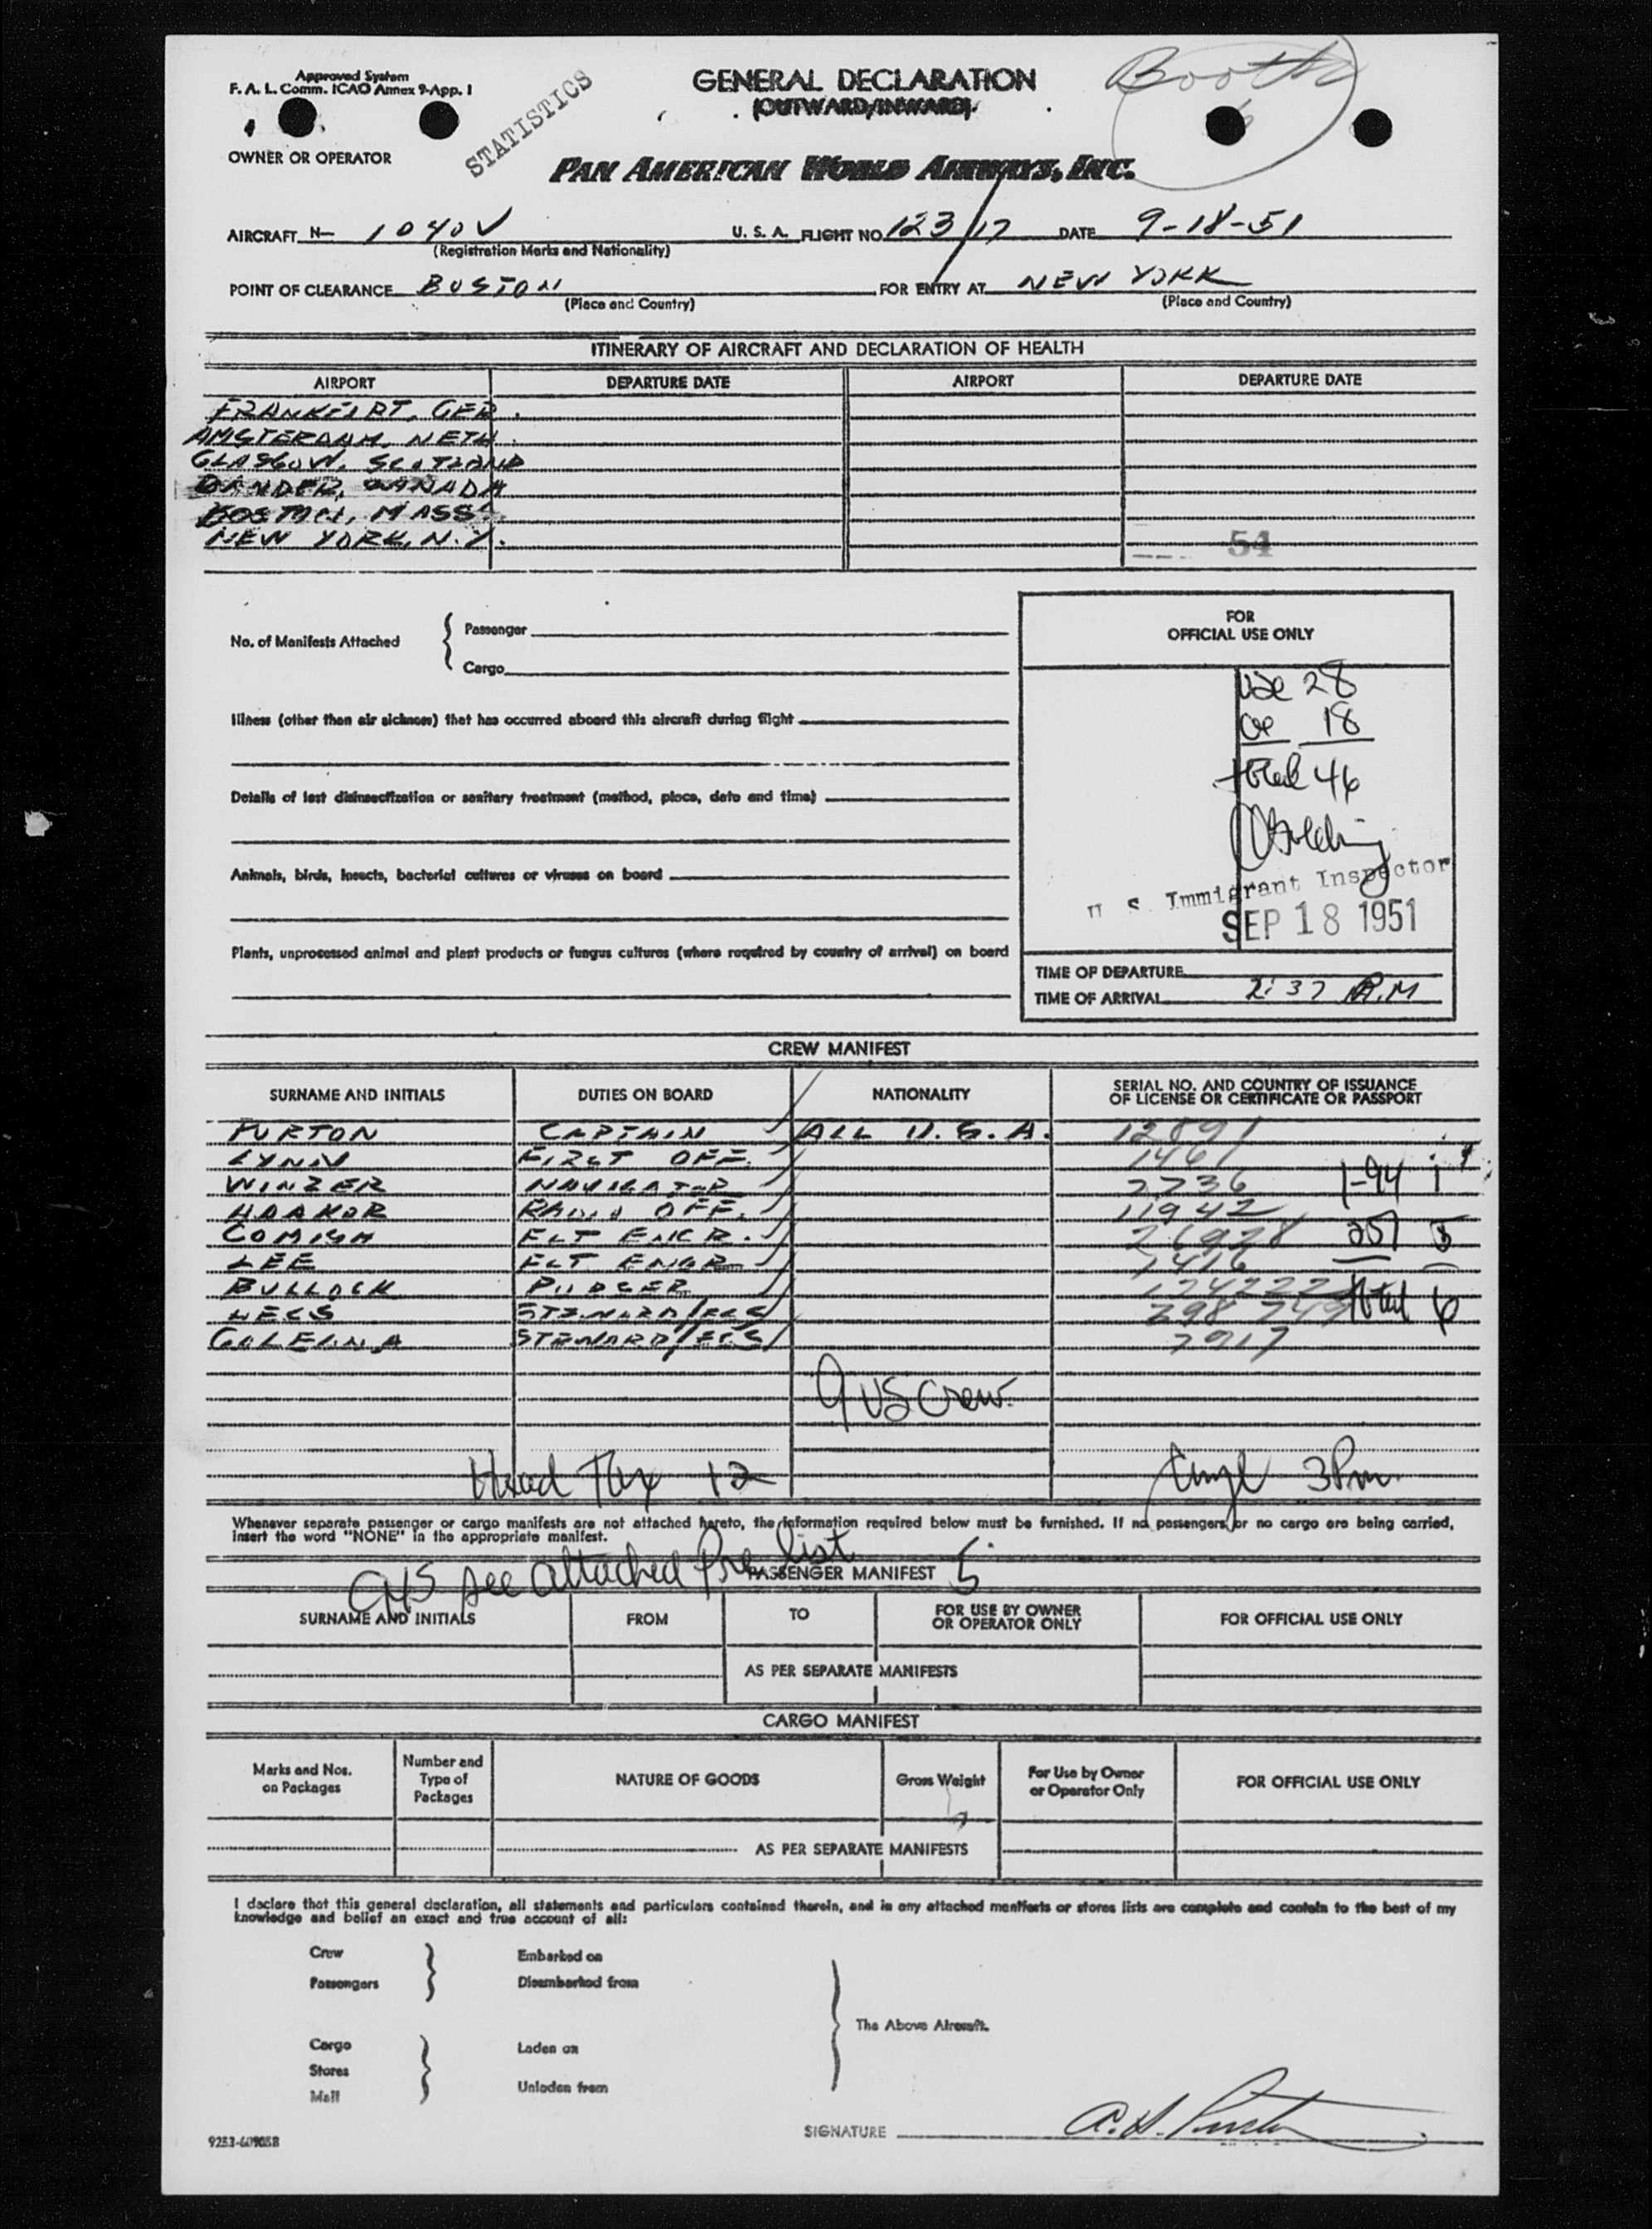 Approved System
F. A. L. Comm. ICAO Annex 9-App. 1
STATISTICS
GENERAL DECLARATION
(OUTWARD/INWARD)
Booth
OWNER OR OPERATOR
PAN AMERICAN WORLD AIRWAYS, INC.
AIRCRAFT N- 1040V
(Registration Marks and Nationality)
U. S. A. FLIGHT NO. 123/17 DATE 9-18-51
POINT OF CLEARANCE BOSTON
(Place and Country)
FOR ENTRY AT NEW YORK
(Place and Country)
ITINERARY OF AIRCRAFT AND DECLARATION OF HEALTH
AIRPORT DEPARTURE DATE AIRPORT DEPARTURE DATE
FRANKFURT, GER.
AMSTERDAM, NETH.
GLASGOW, SCOTLAND
GANDER, CANADA
BOSTON, MASS.
NEW YORK, N.Y.
54
No. of Manifests Attached
Passenger
Cargo
FOR
OFFICIAL USE ONLY
USC 28
18
total 46
U S Immigrant Inspector
SEP 18 1951
Illness (other than air sickness) that has occurred aboard this aircraft during flight
Details of last disinsectization or sanitary treatment (method, place, date and time)
Animals, birds, insects, bacterial cultures or viruses on board
Plants, unprocessed animal and plant products or fungus cultures (where required by country of arrival) on board
TIME OF DEPARTURE
TIME OF ARRIVAL 2:37 P.M
CREW MANIFEST
SURNAME AND INITIALS DUTIES ON BOARD NATIONALITY SERIAL NO. AND COUNTRY OF ISSUANCE
OF LICENSE OR CERTIFICATE OR PASSPORT
PURTON CAPTAIN ALL U.S.A. 12891
LYNN FIRST OFF. 1461
WINZER NAVIGATOR 2736 I-94 1
HAAKOR RADIO OFF. 11942
COMISH FLT ENGR. 26928 257 5
LEE FLT ENGR 1416
BULLOCK PURSER 124222
STEWARD/ESS total 6
STEWARD/ESS 2917
9 US Crew.
Head Tax 12
3 Pm.
Whenever separate passenger or cargo manifests are not attached hereto, the information required below must be furnished. If no passengers or no cargo are being carried,
insert the word "NONE" in the appropriate manifest.
see attached Pre list 5
PASSENGER MANIFEST
SURNAME AND INITIALS FROM TO FOR USE BY OWNER
OR OPERATOR ONLY FOR OFFICIAL USE ONLY
AS PER SEPARATE MANIFESTS
CARGO MANIFEST
Marks and Nos.
on Packages
Number and
Type of
Packages
NATURE OF GOODS
Gross Weight
For Use by Owner
or Operator Only
FOR OFFICIAL USE ONLY
AS PER SEPARATE MANIFESTS
I declare that this general declaration, all statements and particulars contained therein, and in any attached manifests or stores lists are complete and contain to the best of my
knowledge and belief an exact and true account of all:
Crew
Passengers
Embarked on
Disembarked from
The Above Aircraft.
Cargo
Stores
Mail
Laden on
Unladen from
SIGNATURE A. H. Purton